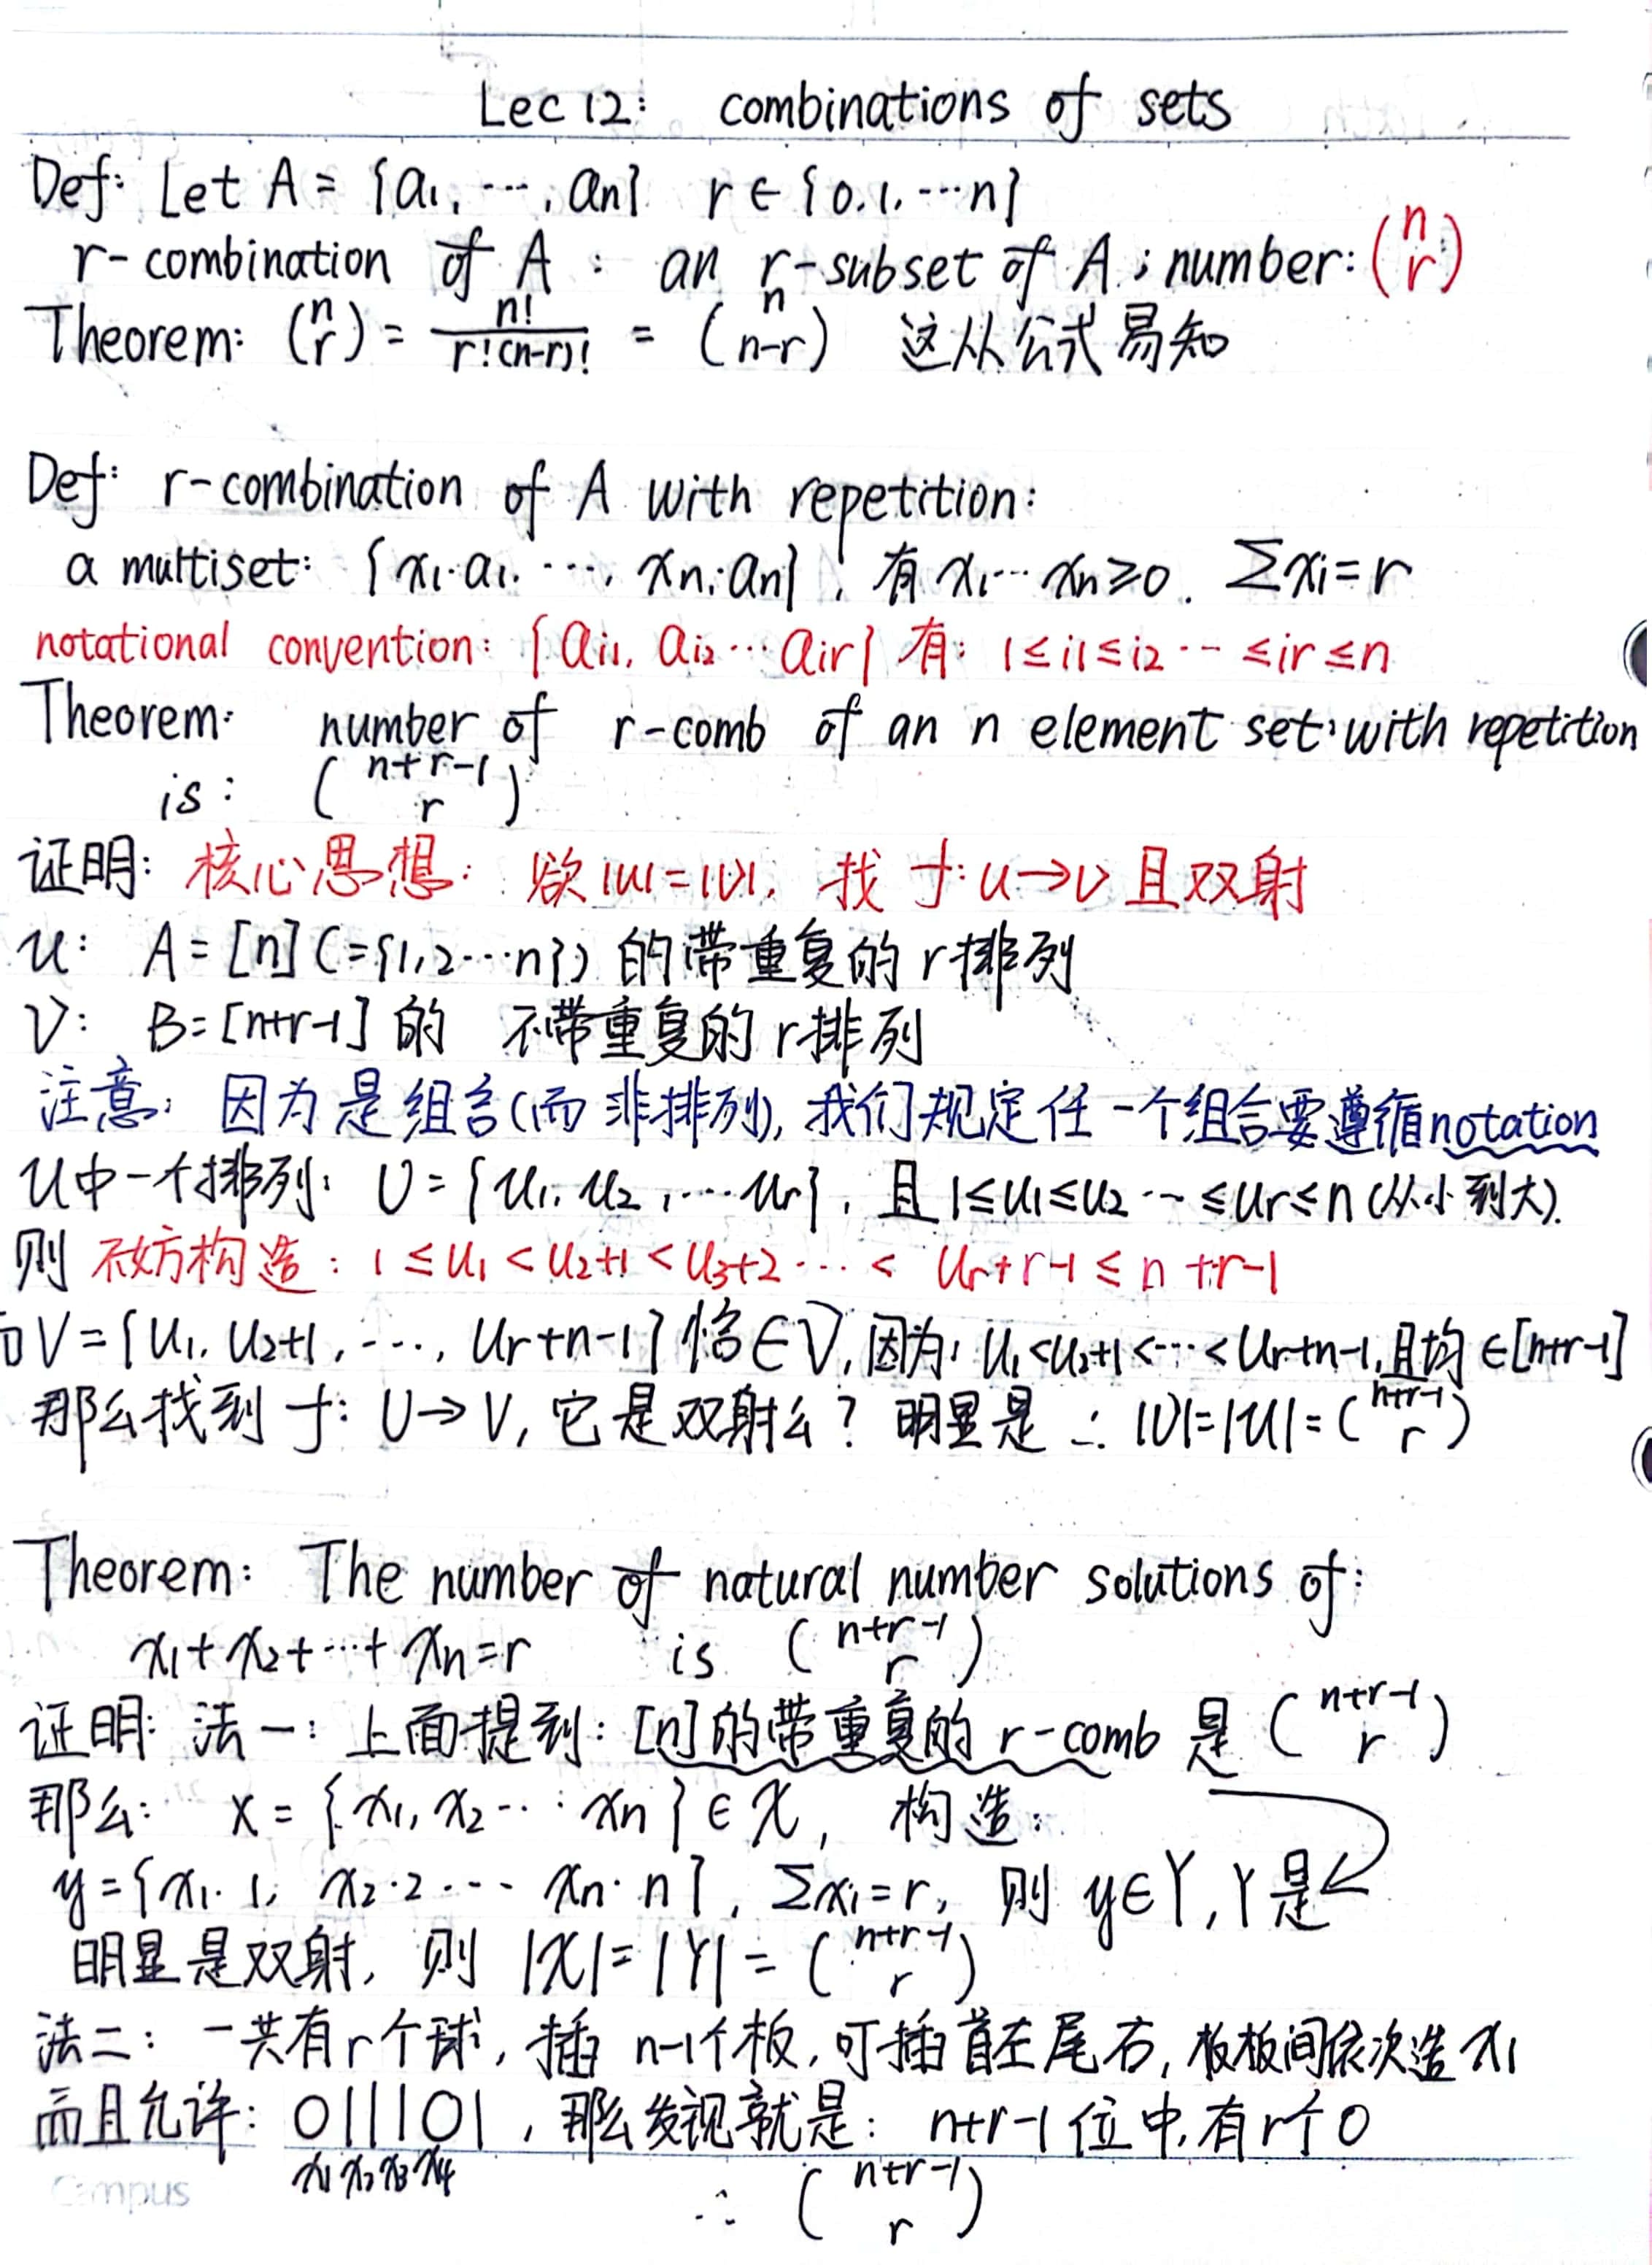 Lec 12: combinations of sets
Def: Let A = {a₁, ···, aₙ} r ∈ {0.1. ···n}
r-combination of A : an r-subset of A ; number: (n r)
Theorem: (n r) = n!/r!(n-r)! = (n n-r) 这从公式易知
Def: r-combination of A with repetition:
a multiset: {x₁·a₁. ···, xₙ·aₙ}, 有 x₁···xₙ≥0. Σxᵢ=r
notational convention: {aᵢ₁, aᵢ₂···aᵢᵣ} 有: 1≤i1≤i2 ··· ≤ir≤n
Theorem: number of r-comb of an n element set with repetition
is: (n+r-1 r)
证明: 核心思想: 欲|U|=|V|, 找 f: U→V 且双射
U: A = [n] (={1,2···n}) 的带重复的 r排列
V: B=[n+r-1] 的 不带重复的 r排列
注意: 因为是组合(而非排列), 我们规定任一个组合要遵循notation
U中一个排列: U = {u₁, u₂, ···uᵣ}, 且 1≤u₁≤u₂ ··· ≤uᵣ≤n (从小到大).
则 不妨构造: 1 ≤ u₁ < u₂+1 < u₃+2 ··· < uᵣ+r-1 ≤ n+r-1
而V={u₁, u₂+1, ···, uᵣ+n-1} 恰∈V, 因为: u₁<u₂+1<···<uᵣ+n-1, 且均∈[n+r-1]
那么找到 f: U→V, 它是双射么? 明显是 ∴ |V|=|U|=(n+r-1 r)
Theorem: The number of natural number solutions of:
x₁+x₂+···+xₙ=r is (n+r-1 r)
证明: 法一: 上面提到: [n]的带重复的 r-comb 是 (n+r-1 r)
那么: x = {x₁, x₂ ··· xₙ} ∈ X, 构造:
y={x₁·1, x₂·2 ··· xₙ·n}, Σxᵢ=r, 则 y∈Y, Y是
明显是双射, 则 |X| = |Y| = (n+r-1 r)
法二: 一共有r个球, 插 n-1个板, 可插首左尾右, 板板间依次造 x₁
而且允许: 0||||0|, 那么发现就是: n+r-1 位中, 有r个0
x₁ x₂ x₃ x₄
Campus
∴ (n+r-1 r)